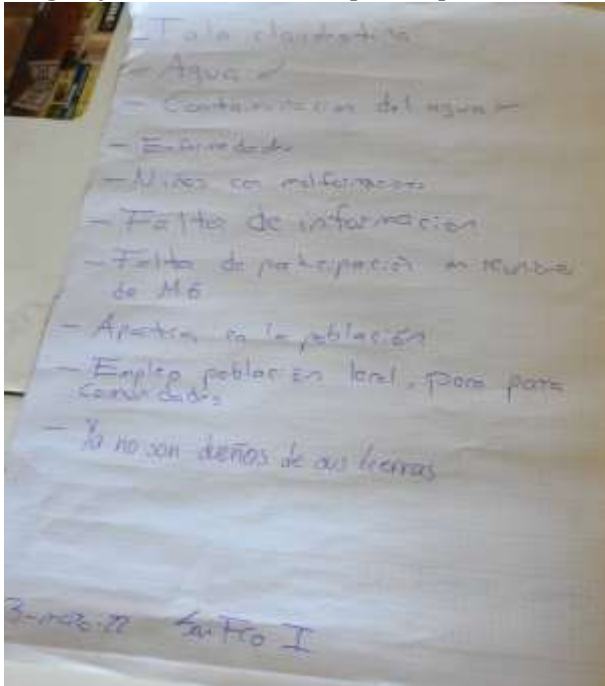 - Tala clandestina
- Agua ✓
- Contaminacion del agua
- Enfermedades
- Niños con malformaciones
- Falta de informacion
- Falta de participación en reuniones
de MG
- Apatia en la población
- Empleo poblacion local, poco para
comunidades
- Ya no son dueños de sus tierras
San Fco I